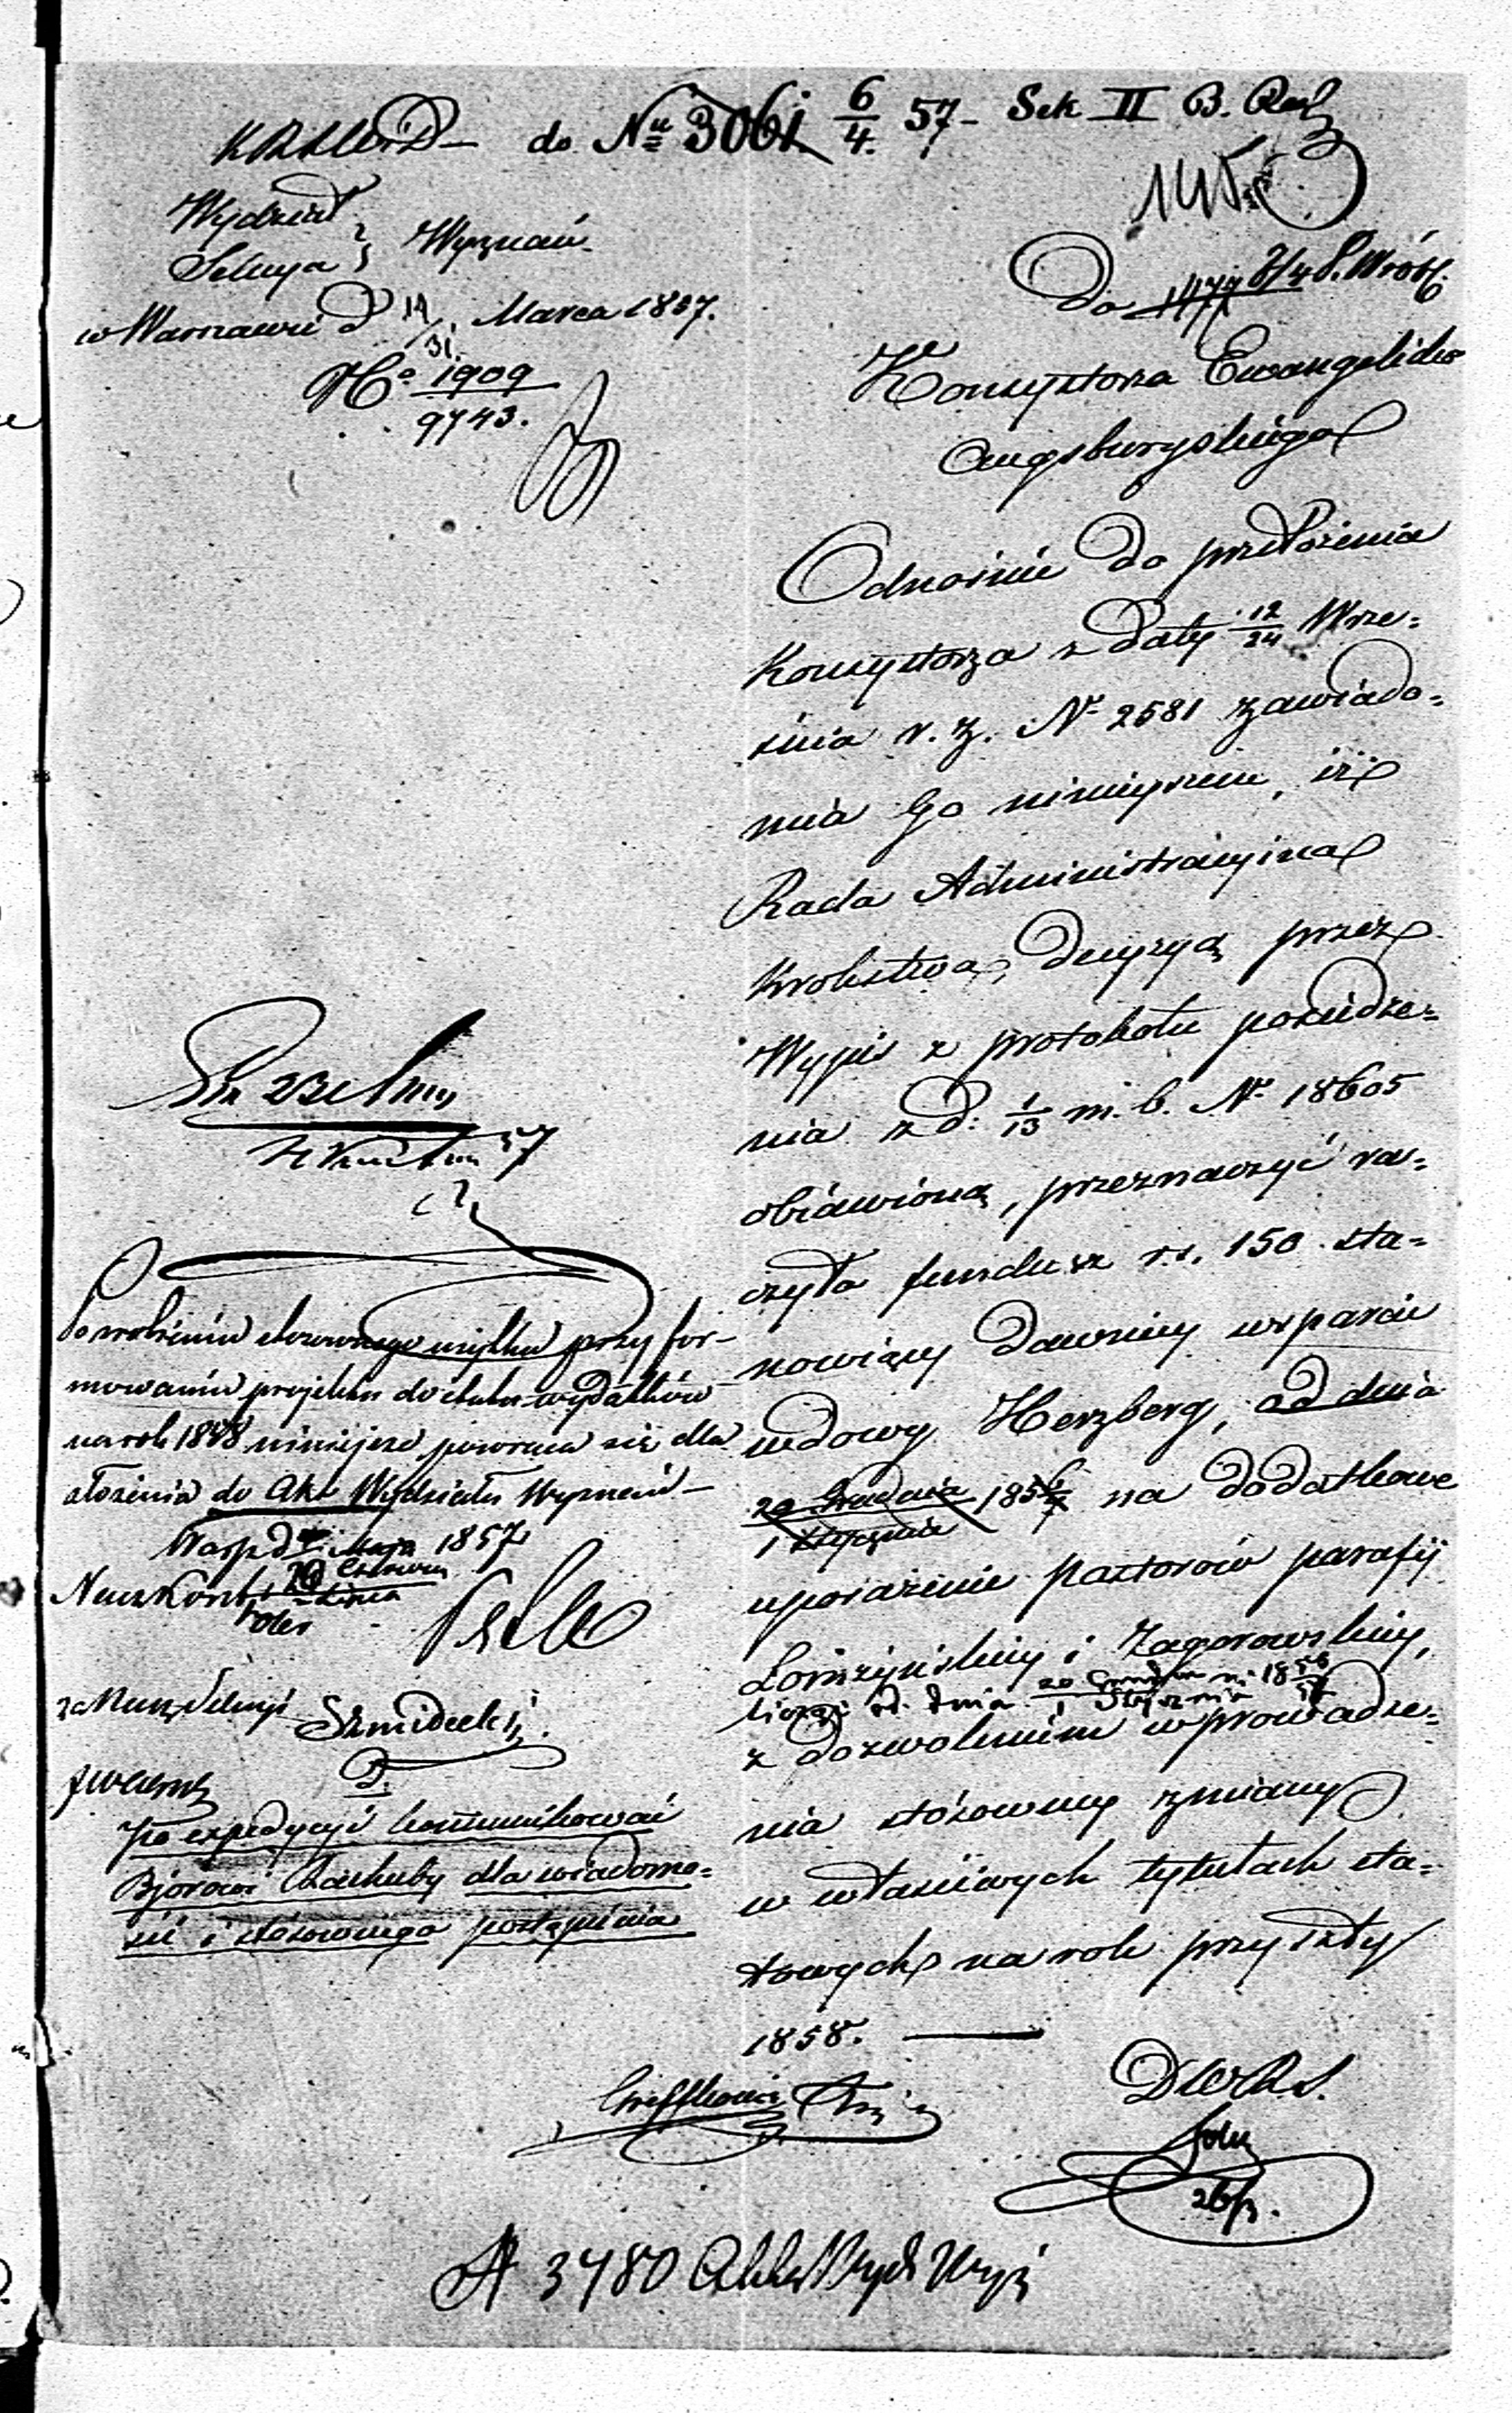 do Nu 3061 6/4 57 - Sek III B. Rach
Wydział
Sekcya } Wyznań
w Warszawie d 19/31 Marca 1857.
No 1909
9743.
Do 1477 8/4 P. Wróbl.
Konsystorza Ewangelicko
Augsburgskiego
Odnośnie do przełożenia
Konsystorza z daty 12/24 Wrze=
śnia r. z. Nr 2581 zawiado=
mia Go niniejszem, iż
Rada Administracyjna
Królestwa, decyzyą przez
Wypis z protokołu posiedze=
nia z d: 1/13 m. b. Nr 18605
objawioną, przeznaczyć ra=
czyła fundusz r.s. 150 sta=
nowiący dawniej wsparcie
wdowy Herzberg, od dnia
20 Grudnia
1 Stycznia 1856/7 na dodatkowe
uposażenie pastorów parafij
Łomżyńskiej i Zagorowskiej,
licząc od dnia 20 Grudnia 1 Stycznia 1856/57
z dozwoleniem wprowadze=
nia stósownej zmiany
w właściwych tytułach eta=
towych na rok przyszły
1858.
D.W.R.S.
26/3.
57
Po zrobieniu stosownego użytku przy for-
mowaniu projektu do etatu wydatków
na rok 1858 niniejsze powraca się dla
złożenia do Akt Wydziału Wyznań -
Warsz d Maja 1857
Czerwca
Nacz Kont
za Nacz Sekcyi Szmidecki
po expedycyi kommunikować
Bjórowi Rachuby dla wiadomo=
ści i stósownego postąpienia
A 3480 Akta Wydz Wyz